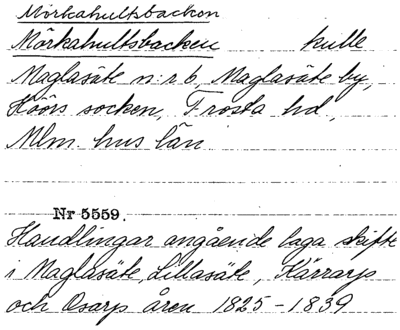 Mörkahultsbacken
Mörkahultsbacken kulle
Maglasäte n:r 6, Maglasäte by,
Höörs socken, Frosta hd,
Mlm. hus län
Nr 5559.
Handlingar angående laga skifte
i Maglasäte, Lillasäte, Kärrarp
och Osarp åren 1825-1839